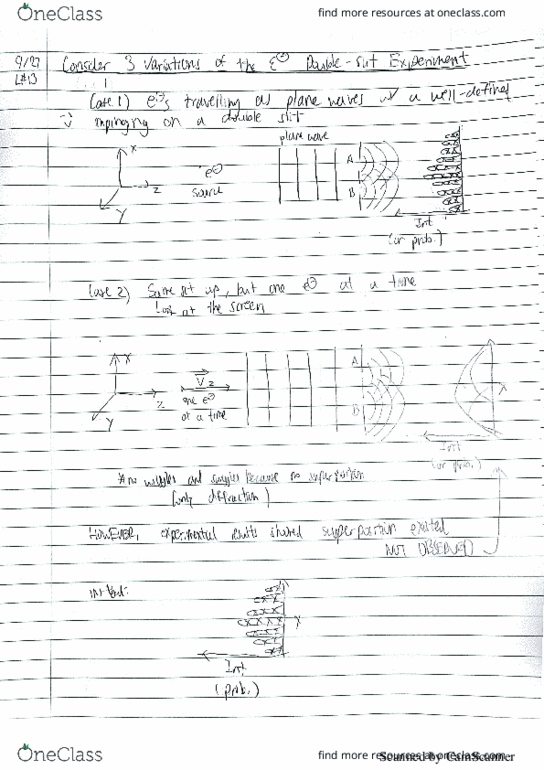 OneClass
find more resources at oneclass.com
9/27
L#13
Consider 3 variations of the e⊖ Double-slit Experiment
Case 1) e⊖s travelling as plane waves w/ a well-defined
impinging on a double slit
plane wave
X
Z
Y
e⊖
source
A
B
Int
(or prob.)
Case 2) Same set up, but one e⊖ at a time
Look at the screen
X
Z
Y
V z
one e⊖
at a time
A
B
X
Int
(or prob.)
*no wiggles and because no superposition
(only diffraction)
HOWEVER, experimental results showed superposition existed
NOT OBSERVED
Instead:
X
Int
(prob.)
OneClass
find more resources at oneclass.com
Scanned by CamScanner